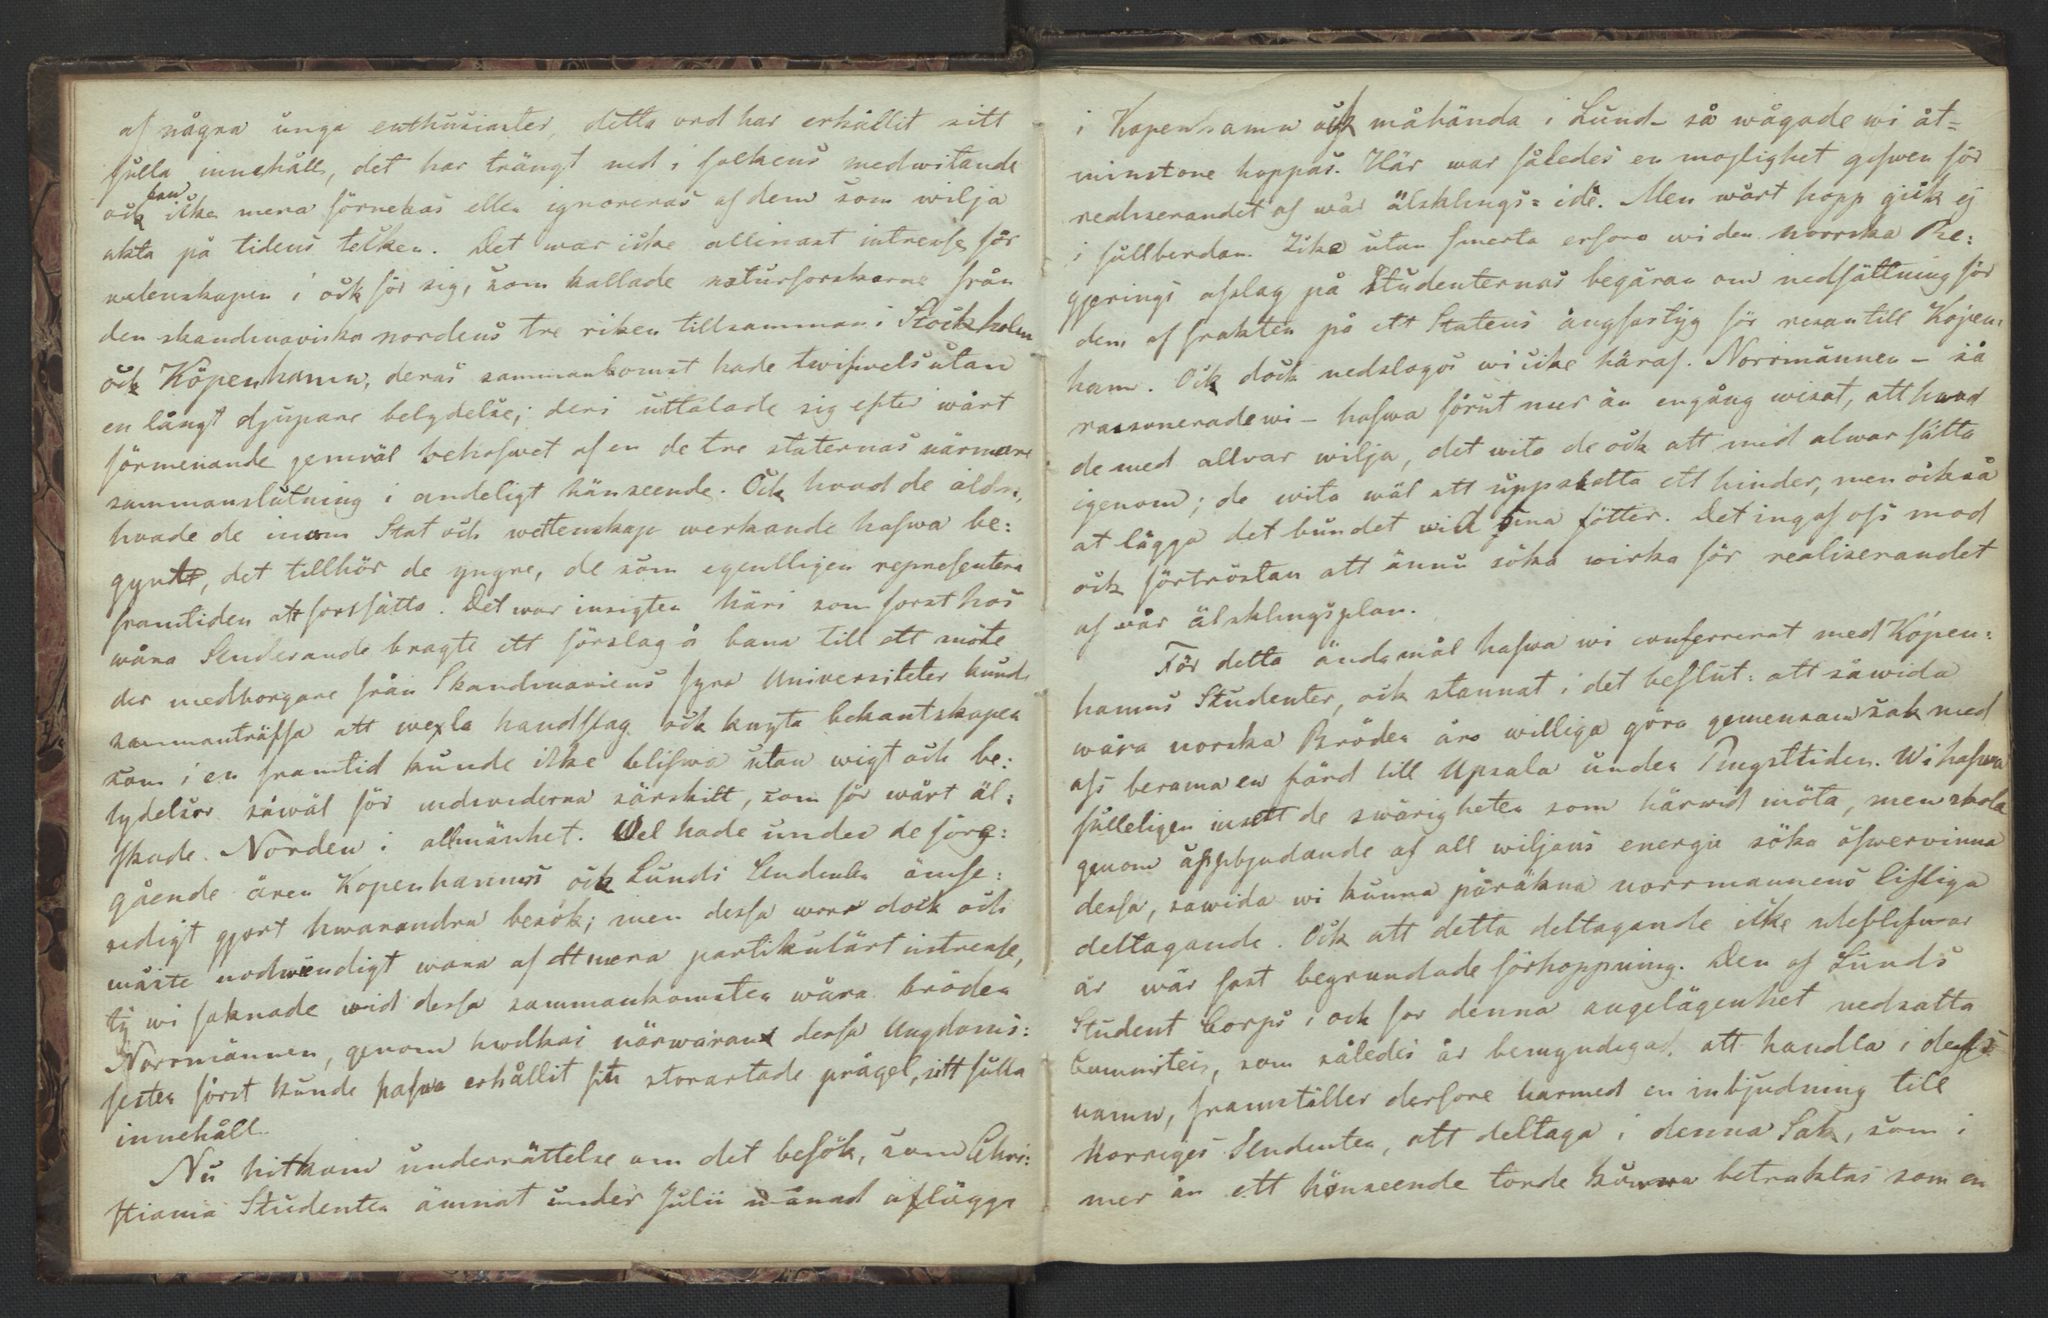 af några unga enthusiaster, detta ord har erhållit sitt
fulla innehåll, det har trängt ned i folkens medwitande
kan
ock icke mera förnekas eller ignoreras af dem som wilja
akta på tidens teken. Det war icke allinast intresse för
vetenskapen i ock för sig, som kallade naturforskarne från
den skandinaviska nordens tre riken tillsamman i Stockholm
ock Köpenhamn, deras sammankomst hade twifwelsutan
en långt djupare betydelse; deri uttalade sig efter wårt
förmenande jemväl behofwet af en de tre staternas närmare
sammanslutning i andeligt hänseende. Ock hvad de äldre,
hvade de inom Stat och wettenskap werkande hafwa be:
gynt, det tillhör de yngre, de som egentligen representera
framtiden att forssätta. Det war insigten häri som forst hos
wåra Studerande bragte ett förslag å bane till ett möte
der medborgare från Skandinaviens fyra Universiteter kunde
sammanträffa att wexla handslag ock knyta bekantskaper
som i en framtid kunde icke blifwa utan wigt och be:
tydelser såwäl för individerna särskilt, som för wårt äl:
skade Norden i allmänhet. Wel hade under de före:
gående åren Kopenhamns ock Lunds Studenter ömse:
sidigt gjort hwarandra besök; men dessa woro dock och
måste nodwendigt wara af ett mera partikulärt intresse,
ty wi saknade wid dessa sammankomster wåra bröder
Norrmännen, genom hwilkas närwarand dessa Ungdoms:
fester först kunde hafwa erhållit sitt storartade prägel, sitt fulla
innehåll.
Nu hitkom underrättelse om det besök, som Chri:
stiania Studenter ämnat under Julii månad aflägga
i Kopenhamn ock måhända i Lund – så wågade wi åt=
minstone hoppas. Här war således en mojlighet gifwen för
realiserandet af wår älsklings=idé. Men wårt hopp gick ej
i fullbordan. Icke utan smerta erforo wi den norrska Re:
gjerings afslag på Studenternas begäran om nedsättning för
dem af frakten på ett Statens ångfartyg för resan till Köpen:
hamn. Ock dock nedslogos wi icke häraf. Norrmännen – så
rassonerade wi – hafwa förut mer än engång wisat, att hwad
de med allvar wilja, det wito de ock att mid alwar sätta
igenom; de wita wäl att uppskatta ett hinder, men också
at lägga det bundet wid sina fötter. Det ingaf oss mod
ock förtröstan att ännu söka wirka för realiserandet
af vår älsklingsplan.
För detta ändamål hafwa wi conferrerat med Köpen:
hamns Studenter, ock stannat i det beslut: att såwida
wåra norska Bröder äro williga göra gemensam sak med
oss berama en färd till Upsala under Pingsttiden. Wi hafwa
fulleligen insett de swårigheter som härwid möta, men skola
genom uppbjudande af all wiljans energie söka öfwervinna
dessa, sawida wi kunna påräkna norrmannens lifliga
deltagande. Ock att detta deltagande icke uteblifwar
är wår fast begrundade förhoppning. Den af Lunds
Student Corps i ock for denna angelägenhet nedsatta
Committeis, som således är bemyndigad att handla i dess
namn, framställer derfore harmed en inbjudning till
Norriges Studenter, att deltaga i denna Sak, som i
mer än ett hänseende torde kunna betraktas som en